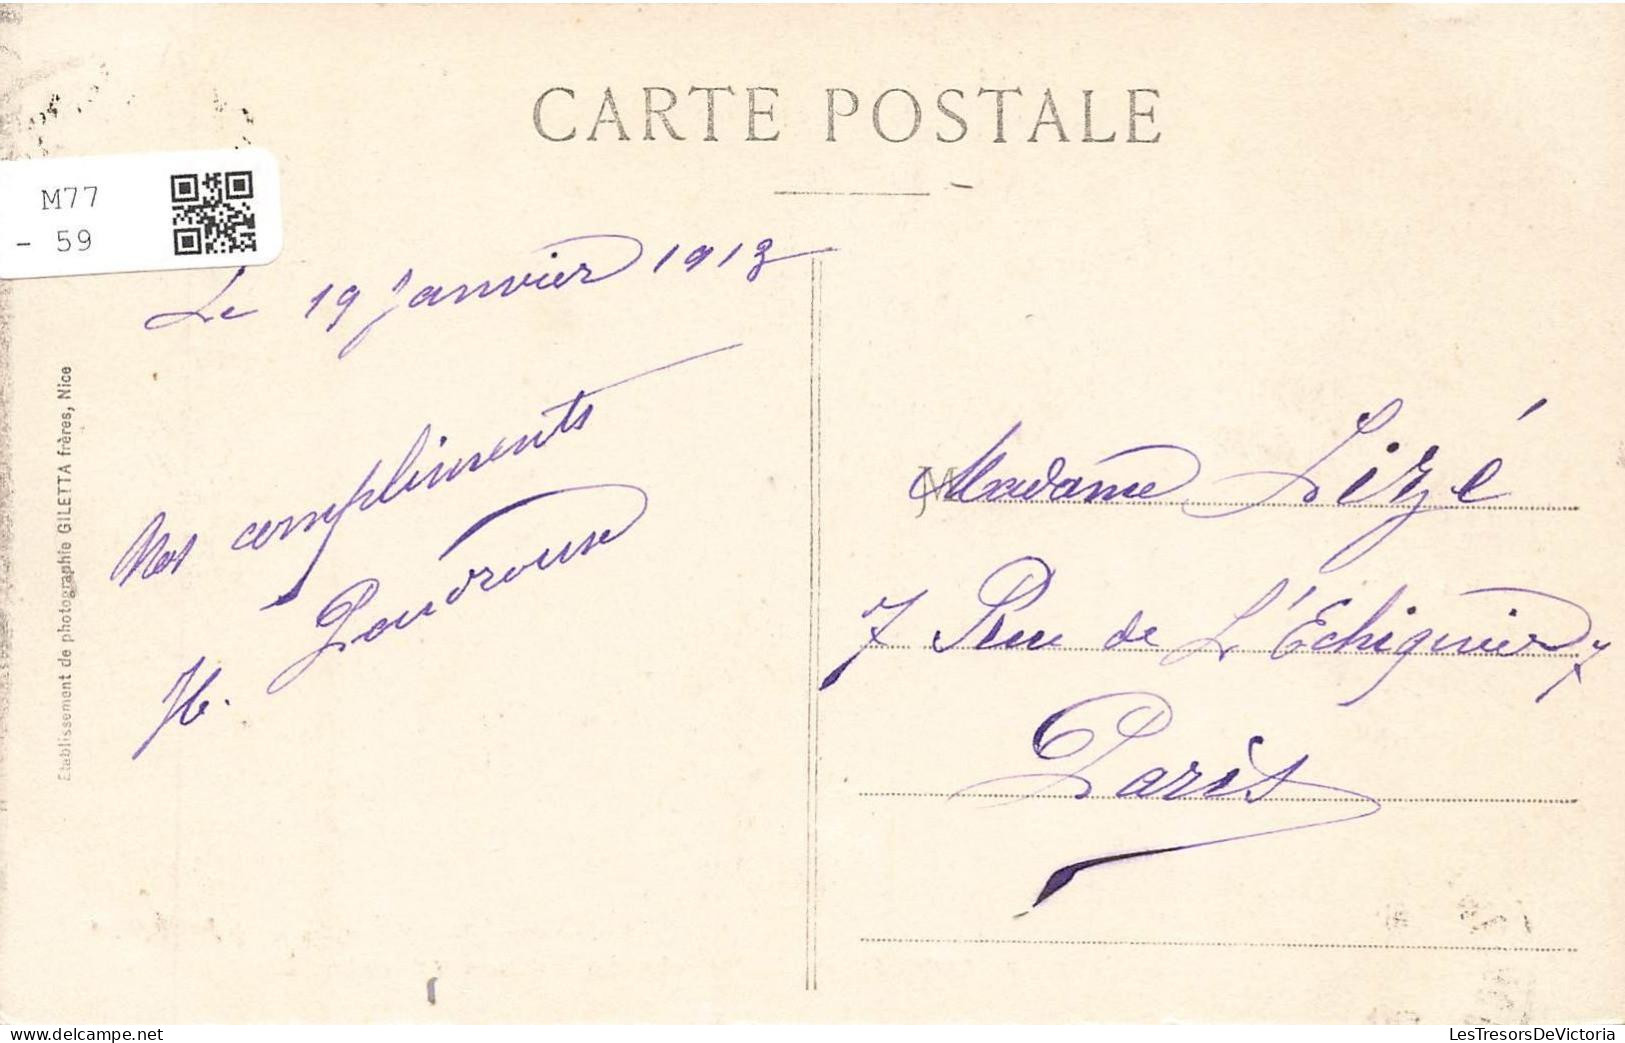 CARTE POSTALE
M77
- 59
Le 19 Janvier 1913
Nos compliments
H.
Etablissement de photographie GILETTA frères, Nice
M
Madame Lizé
7 Rue de L'Echiquier 7
Paris
delcampe.net
LesTresorsDeVictoria